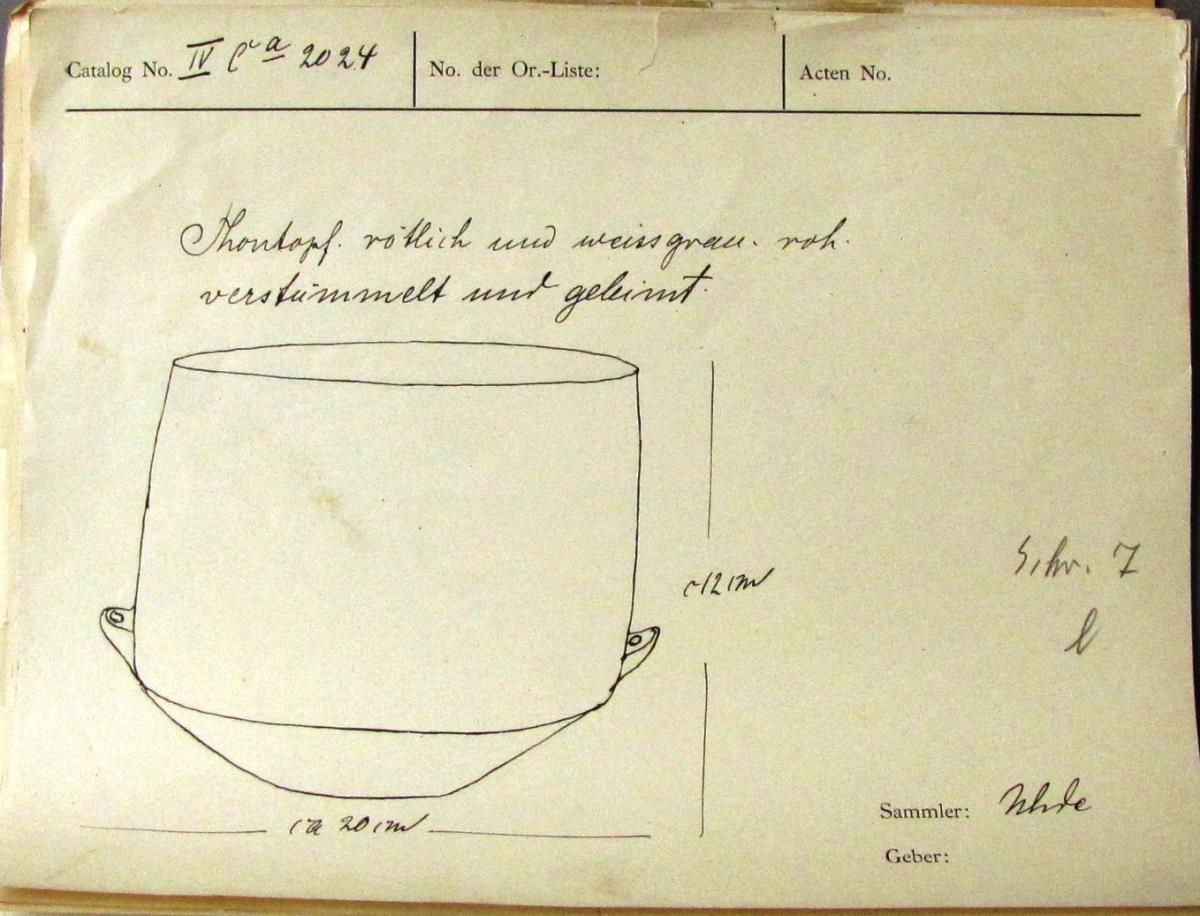 Catalog No. IV Ca 2024
No. der Or.-Liste:
Acten No.
Thontopf. rötlich und weissgrau. roh.
verstümmelt und geleimt.
c 12 cm
Schr. 7
l
ca 20 cm
Sammler: Uhde
Geber: